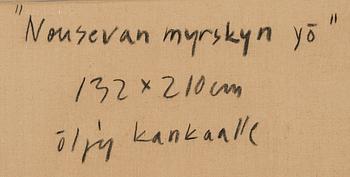 "Nousevan myrskyn yö"
132 x 210 cm
öljy kankaalle